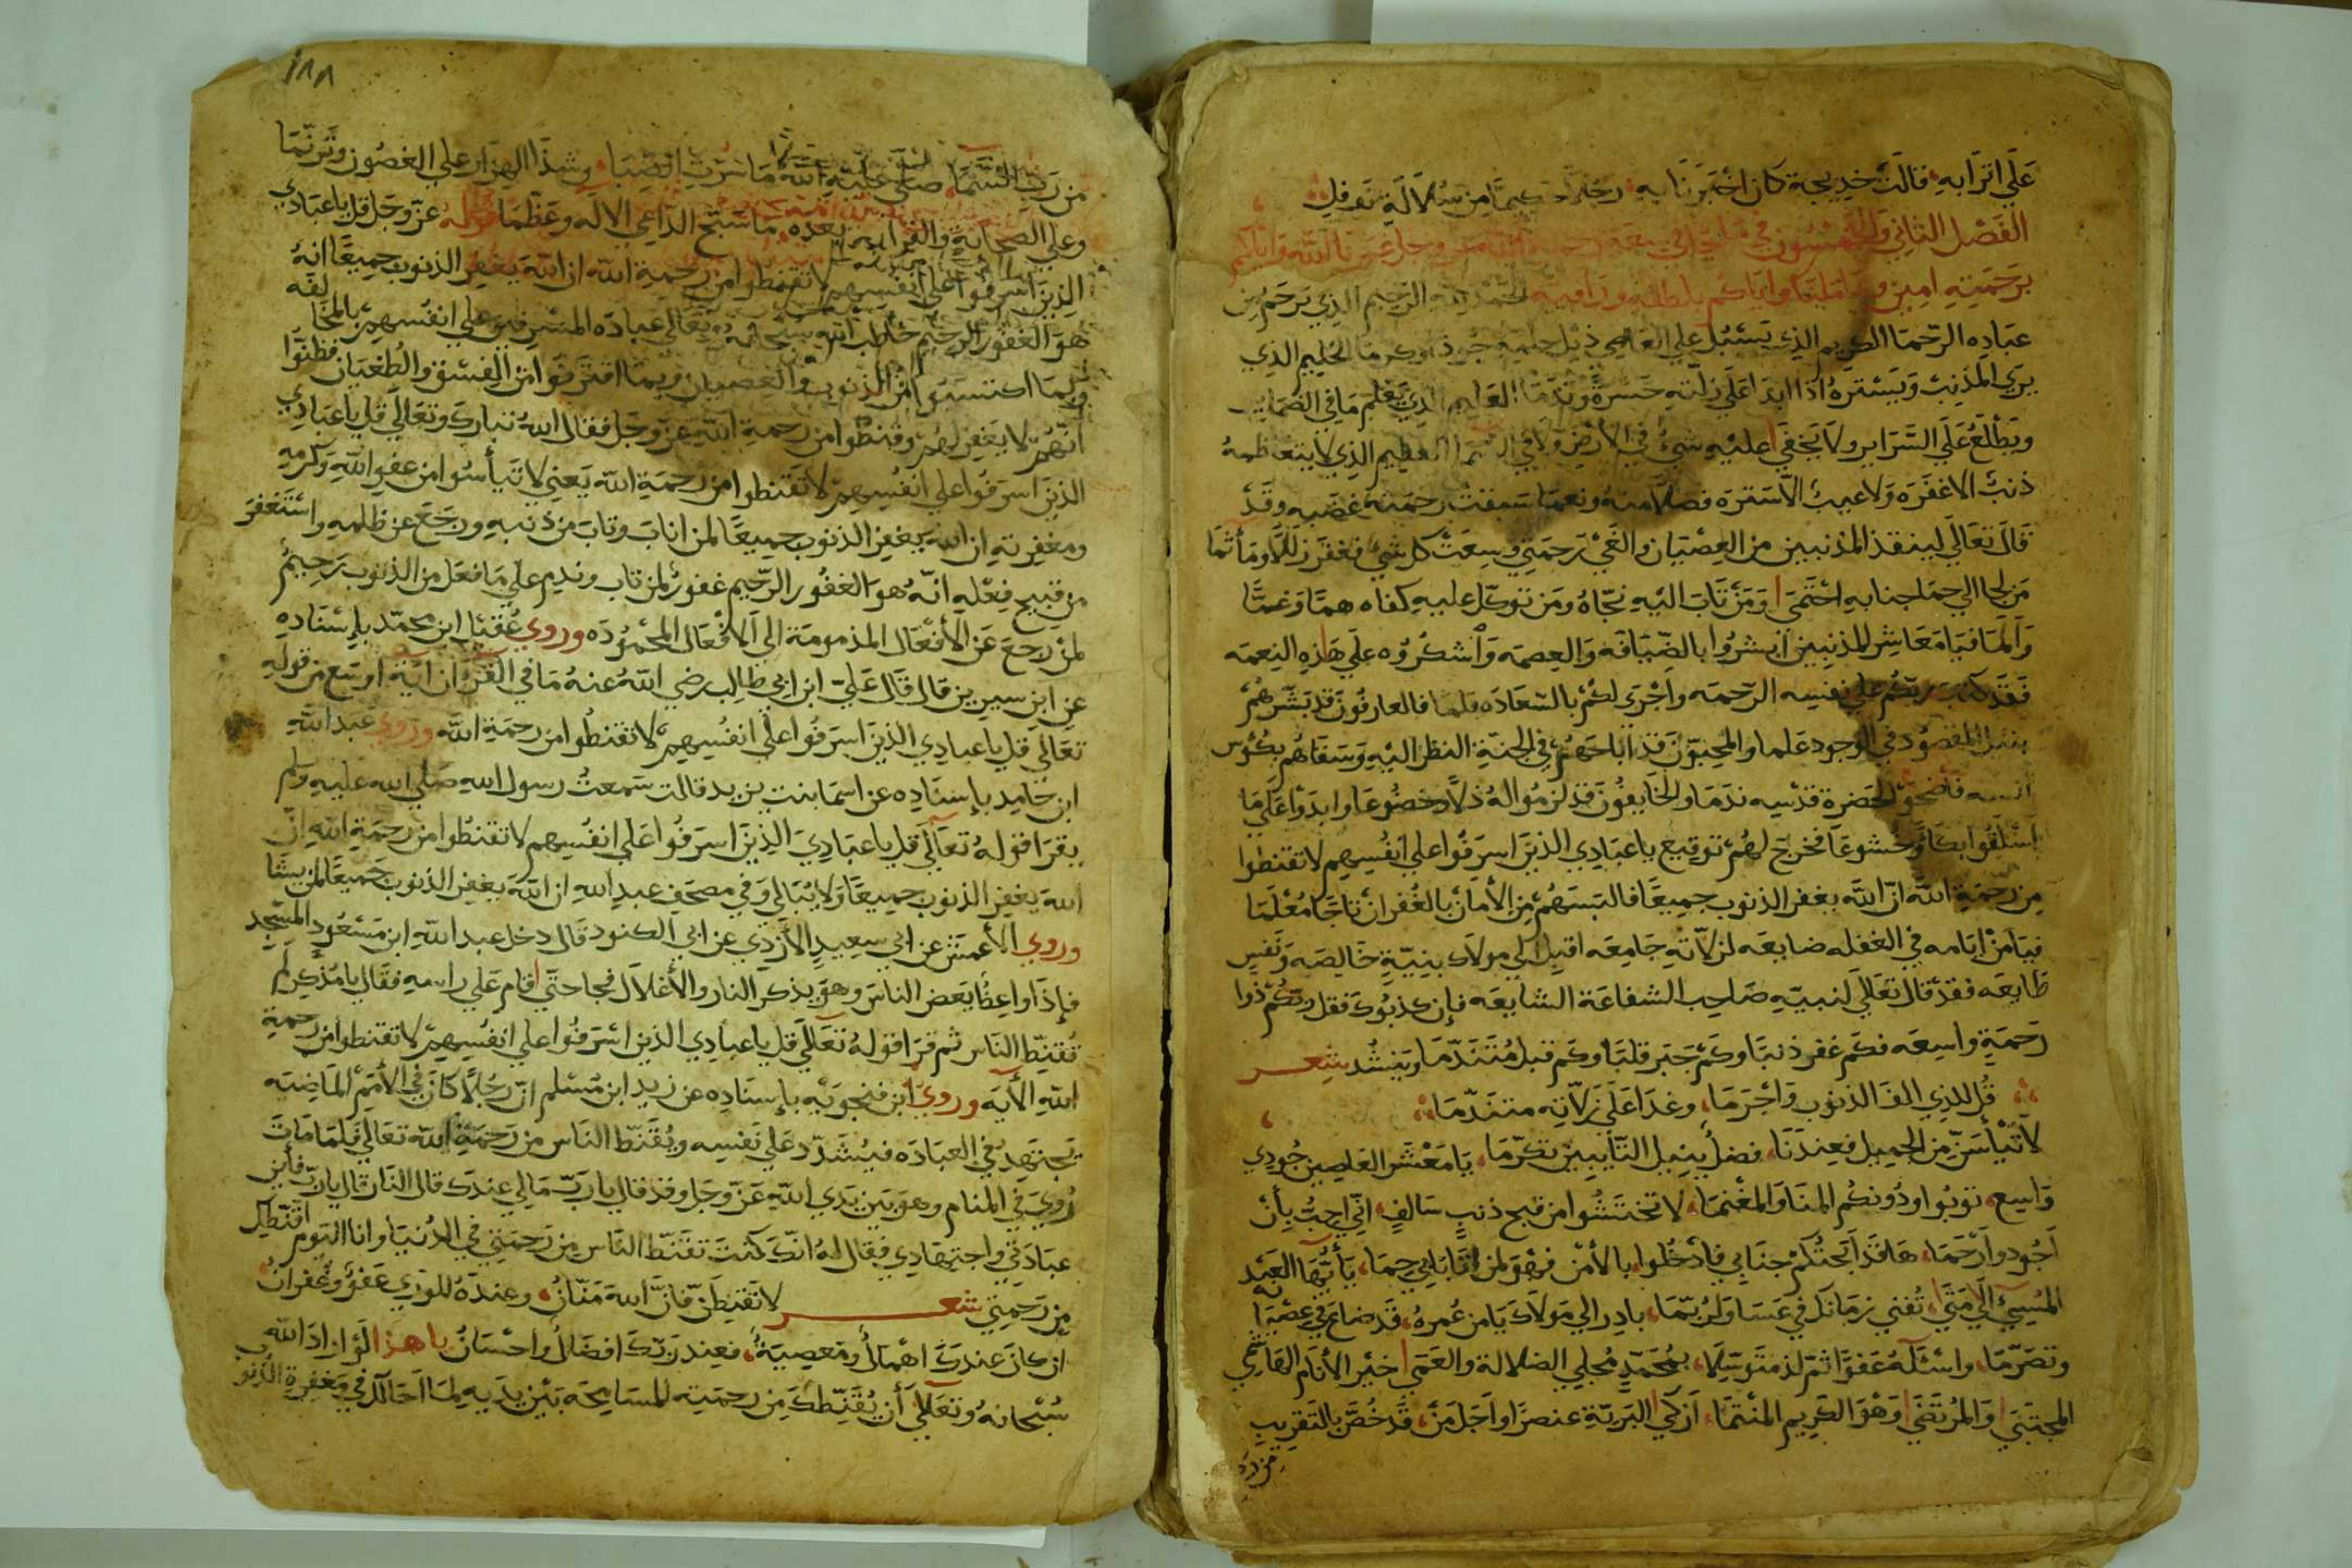 عَلَي اتَرَابهِ، قالت خديجة كان اخبَرنَا به، رجُل من سُلَالَة نَوفلِ
الفَصْل الثاني والخمسُون في
برَحمَتِهِ امِين وعَامَلنَا وايّاكم بلطفه ورَافتِه الحمد لله الرحيم الذي يَرحَم مِن
عبَادِه الرّحمَا الكريم الذي يَسْبُل علي العَاصي ذيل حلمه جُودًا وكرمَا الحليم الذي
يري المُذنِبْ وَيَسْترَهُ اذا ابدَا عَلَي زلته حَسرَةً وَنَدَمَا العَليم الذي يَعْلَم مَا في الضمَاير
ويَطلعُ عَلَي السَّرَاير ولَا يَخفَي عليْه شيءٌ في الأرْض وَلا في السّمَا العظيم الذي لا يتعَاظمهُ
ذنبٌ الا غفَرَه وَلا عيبٌ الّا سَترَه فضلًا منهُ ونعمَا سَبقتْ رحمَته غضَبه وقَدْ
قالَ تعَالَي لينقذ المذنبين من العِصْيَان والغَيّ رَحمَتِي وسِعَتْ كل شيْ فغفَرَ زللًا ومَأثمَا
مَن لجا الي حمَا جنابهِ احْتَمَي وَمَنْ تَابَ اليْهِ نجّاهُ ومَن توكّل عليهِ كفاه همًّا وَغمًّا
وَأَلَمَا فيَا مَعَاشِر المذنبِين أبشرُوا بالضّيَافَه وَالعِصمَه وَاشكرُوه علَي هَاذِه النِعمَه
فَقَد كتبَ ربّكُم علي نفسِه الرّحمَه واجْرَي لكُم بالسّعَادَه قلمَا فالعارفُونَ قد بَشّرهُم
بنيل المقصُود في الوجود عَلما والمحبّونَ قد أباحَهُم في الجنّة النظر اليْهِ وَسَقاهُم بكؤس
انسِه فأضحوْ لحَضرة قدْسِه ندَمَا والخَايفُونَ قد لزمُوا لهُ ذلًّا وخضُوعَا وابدَوْا عَلي مَا
اسْلَفُوا بكَاً وَخشوعَا فخرَجَ لهُمْ توقيع ياعبَادِي الذينَ اسرَفُوا علي انفُسِهم لا تقنطوا
مِن رَحمَةِ اللَّه انّ اللَّه يغفر الذنوبَ جميعًا فالبَسَهُمْ مِن الأمَانْ بالغُفرانْ تاجًا مُعْلَمَا
فيَا مَنْ ايّامه في الغفله ضايعَه لزلّاتهِ جَامِعَه اقبل الَي مولاك بنيّةٍ خَالِصَه وَنَفسٍ
طَايعَه فقدْ قال تعَالَي لنبيّهِ صَاحِب الشفاعَة الشايعَه فإن كذبُوكَ فقل ربّكُم ذوا
رَحمَةٍ واسِعَه فكَم غفر ذنبَا وكَمْ جَبَر قلبًا وكَم قبل مُتَنَدّمَا وَينشُد شعر
قُل للذي الفَ الذنوبَ وَاجْرَمَا، وغدَا عَلَي زلّاتِه متنَدّمَا
لا تَيْأسَنّ مِن الجميل فعِندَنَا، فضلٌ ينيل التّايبين تكرّمَا، يَا مَعْشَر العَاصِينَ جُودِي
وَاسِع، توبُوا ودُونكُم المنَا وَالمغْنمَا، لا تختَشُوا من قبح ذنبٍ سَالفٍ، انّي احِبُّ بأنْ
اجُودَ وارْحَمَا، هَا قَد ابحتُكمْ جنَابي فادْخُلوا، بالأمْن فهْوَ لمن اتَانَا بي حِمَا، يَأَيّهَا العَبْد
المُسِيءُ الَي مَتَي، تُفني زمَانَكَ في عَسَا وَلَرُبّمَا، بادِر الي مَولاك يَا مَن عُمره، قَد ضاعَ في عصْيَانه
وتصَرّمَا، واسْئَلهُ عَفوًا ثمّ لذ متوَسِّلًا، بمُحمّدٍ مُجلِي الضلالة والعَمَي خيْر الأنَام القَاسِمي
المجتبَي وَالمُرتَضَي وَهْوَ الكَريم المنْتمَا، ازكَي البَرِيّةِ عنصرًا واجَلّ مَنْ، قَد خُصَّ بالتَقريبِ
من رب
١٨٨
من رَبّ السَّمَا، صلّي عليْه اللّه مَا سَرَتِ الصّبَا، وشذَا الهزار علي الغصُون وتَرنّمَا
وعلي الصّحَابةِ والقرَابه بعدَه، مَا سَبّح الدّاعي الالَه وعَظّمَا قوْلهُ عزّ وجَل قل ياعبَادي
الذِينَ اسرفُوا علي أنفُسِهِم لا تقنطوا مِن رحمَة اللّه ان اللّه يغفر الذنوبَ جميعًا انهُ
هُوَ الغفور الرحيم خاطَب اللّه سُبحَانهُ وتعَالي عبادَه المسْرفين علي انفُسهِم بالمخالفه
وبمَا اكتسَبُوا من الذنوب والعصيان وبمَا اقتَرفُوا من الفِسْق والطُغيَان فظنّوا
أنّهُم لا يغفر لهُم وقنطوا من رحمةِ اللّه عزّ وجَل فقال اللهُ تبارك وتعَالي قل ياعبَادِي
الذينَ اسرَفُوا علي انفُسهِم لا تقنطوا من رحمَةِ اللّه يَعني لا تيأسُوا من عفو اللّهِ وكرمهِ
ومغفرتهِ ان اللّه يغفر الذنوب جميعًا لمن انابَ وتابَ من ذنبهِ ورجَعَ عن ظلمهِ واسْتَغفرَ
من قبيح فِعْلهِ انّهُ هوَ الغفُور الرّحيم غفورٌ لمن تاب وندِم علي مَا فعَل من الذنوب رَحيمٌ
لمنْ رجعَ عَن الأفْعَال المذمومَة الي الافْعَال المحْمُودَه وروي عُقيل ابن محمّد بإسْنَادهِ
عن ابن سيرين قال قَالَ عَليّ ابن ابي طالِب رضي اللّهُ عنهُ مَا في القرْأنِ ايةٌ اوسَع من قولهِ
تعَالَي قل ياعبادِي الذينَ اسرَفُوا علَي انفُسِهِم لا تقنطُوا من رحمَة اللّه وروي عبد اللَّه
ابن حَامِد بإسنَادِه عن اسمَا بنت يزيد قالت سَمعتُ رسول الله صَلي الله عليه وسلم
يقرَا قولهُ تعَالَي قل ياعبَادِيَ الذِينَ اسرَفُوا عَلي انفُسِهم لا تقنطُوا من رحمَةِ اللّهِ انّ
اللّه يغفر الذنوب جميعًا وَلا يُبَالي وَفي مصحَف عبدِ اللهِ ان اللّهَ يغفر الذنوب جميعًا لمن يشَا
وروي الأعمَش عن ابي سعيدٍ الأزدي عن ابي الكنود قال دخل عبد اللّه ابن مَسْعُود المسْجد
فإذَا واعِظٌ يَعض الناسَ وهوَ يذكر النار والأغلَال فجا حتي قام عَلي راسِهِ فقال يا مُذكِر لم
تُقنِطُ النَاس ثم قرَا قولهُ تعَالَي قل ياعبادي الذين اسْرَفُوا علي انفُسِهِم لا تقنطوا من رحمةِ
اللّهِ الأيَه وروي ابن فنجويَه بإسنَادِه عن زيد ابن مُسْلم ان رجُلًا كَانَ في الأمَم المَاضيَه
يَجتهِدُ في العبَادَه فيُشَدّد عَلي نَفسِه ويُقَنّط النَاس من رَحمَةِ اللّه تعَالي فَلمّا مَاتَ
رُوِيَ في المنام وهوَ بَين يَدي اللّهِ عَزّ وجَل وقد قال يا ربّ مَا لي عندك قال النَار قال يا ربّ فأين
عبَادَتي واجتهَادِي فقال لهُ انّك كنتَ تقَنّط النّاس مِن رَحمَتِي في الدُنيَا وانا اليَوم اقنّطك
مِن رَحمتِي شعر لا تَقنِطَنّ فانَّ اللهَ مَنّانُ، وعندَهُ للوَري عَفوٌ وغُفرانُ
ان كانَ عندَكَ اهْمَالٌ ومَعصِيَةٌ، فعِند رَبّكَ افضَالٌ واحْسَانُ يا هذا لوْ ارَادَ اللّه
سُبْحانهُ وتعَالَي أن يُقَنّطكَ مِن رحمَتِه للمسَامحَه بَيْن يَدَيهِ لمَا احَالكَ في مَغفِرةِ الذنوب